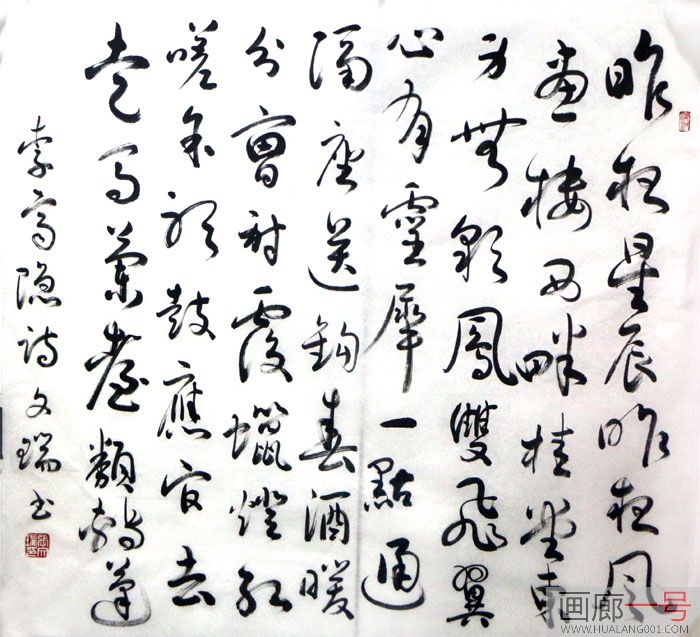 昨夜星辰昨夜風
畫樓西畔桂堂東
身無彩鳳雙飛翼
心有靈犀一點通
隔座送鈎春酒暖
分曹射覆蠟燈紅
嗟余聽鼓應官去
走馬蘭臺類轉蓬
李商隐诗文瑞书
画廊一号
WWW.HUALANG001.COM